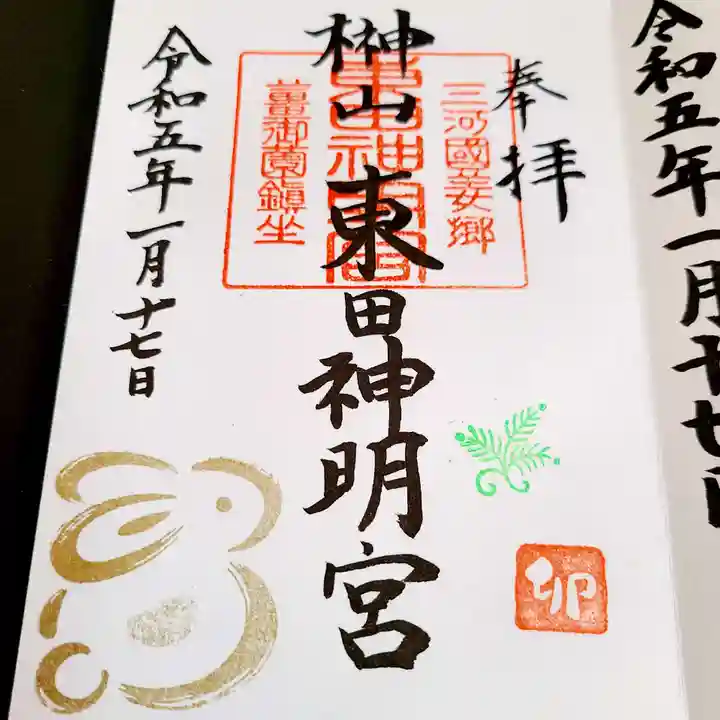 令和五年一月十七日
奉拝
三河國碧海郷
東田神明宮
薑御薗鎮坐
榊山
東田神明宮
令和五年一月十七日
卯